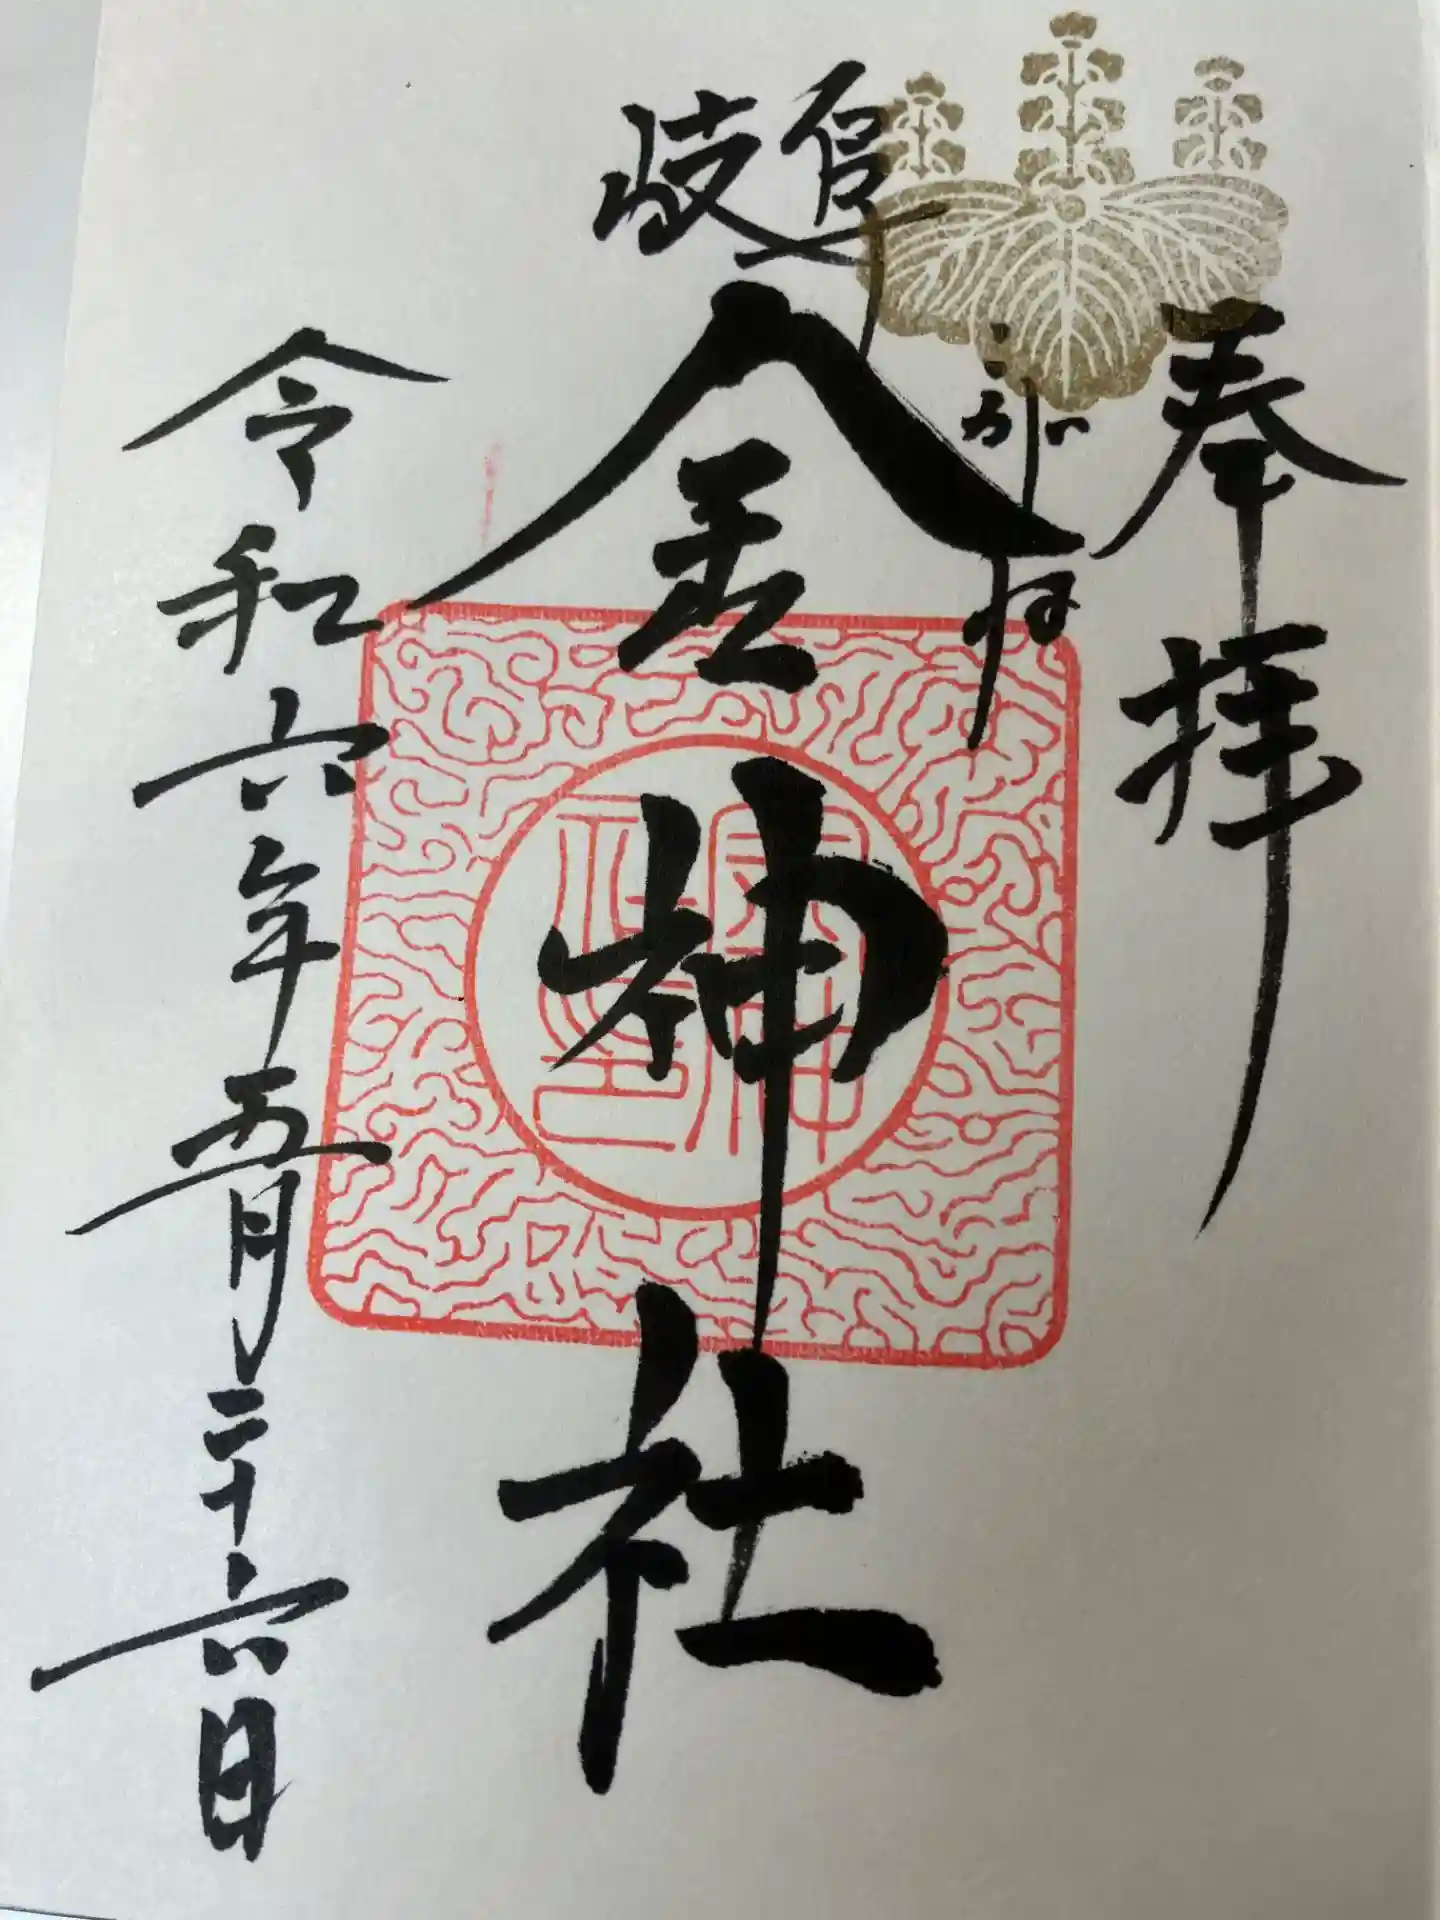 奉拝
岐阜
こがね
金神社
令和六年五月二十六日